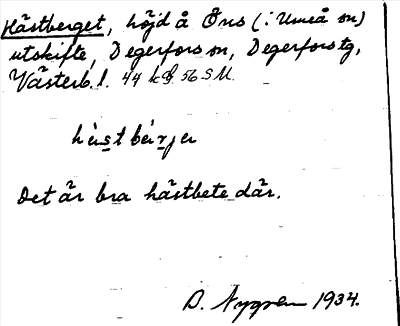 Hästberget, höjd å Öns (: Umeå sn)
utskifte, Degerfors sn, Degerfors tg,
Västerb. l. 44 kf 56 SU.
hä̀st bä̀rjer
Det är bra hästbete där.
D. Nygren 1934.